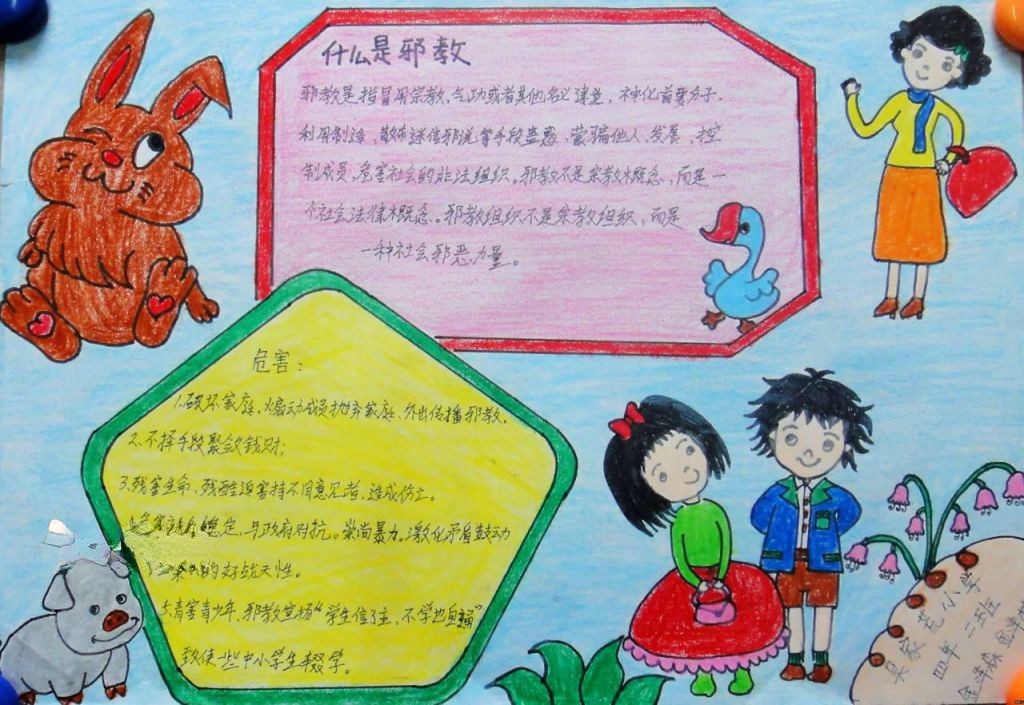 什么是邪教
邪教是指冒用宗教、气功或者其他名义建立、神化首要分子、
利用制造、散布迷信邪说等手段蛊惑、蒙骗他人、发展、控
制成员、危害社会的非法组织。邪教不是宗教概念，而是一
个社会法律概念。邪教组织不是宗教组织、而是
一种社会邪恶力量。
危害：
1.破坏家庭、煽动成员抛弃家庭、外出传播邪教。
2、不择手段聚敛钱财；
3.残害生命、残酷迫害持不同意见者、造成伤亡。
稳定，与政府对抗。崇尚暴力。激化矛盾鼓动
的好战天性。
5.青害青少年、邪教宣扬“学生信了主、不学也自
致使一些中小学生辍学。
吴家荒小学
四年二班